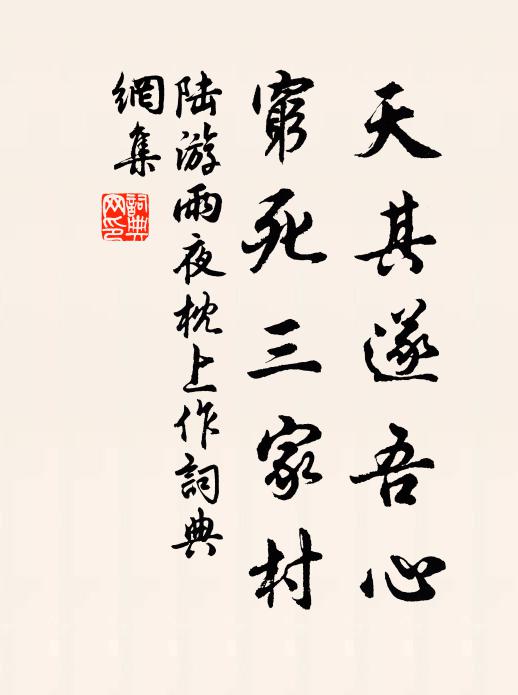 天其遂吾心
窮死三家村
陆游雨夜枕上作詞典
網集
詞典
网印